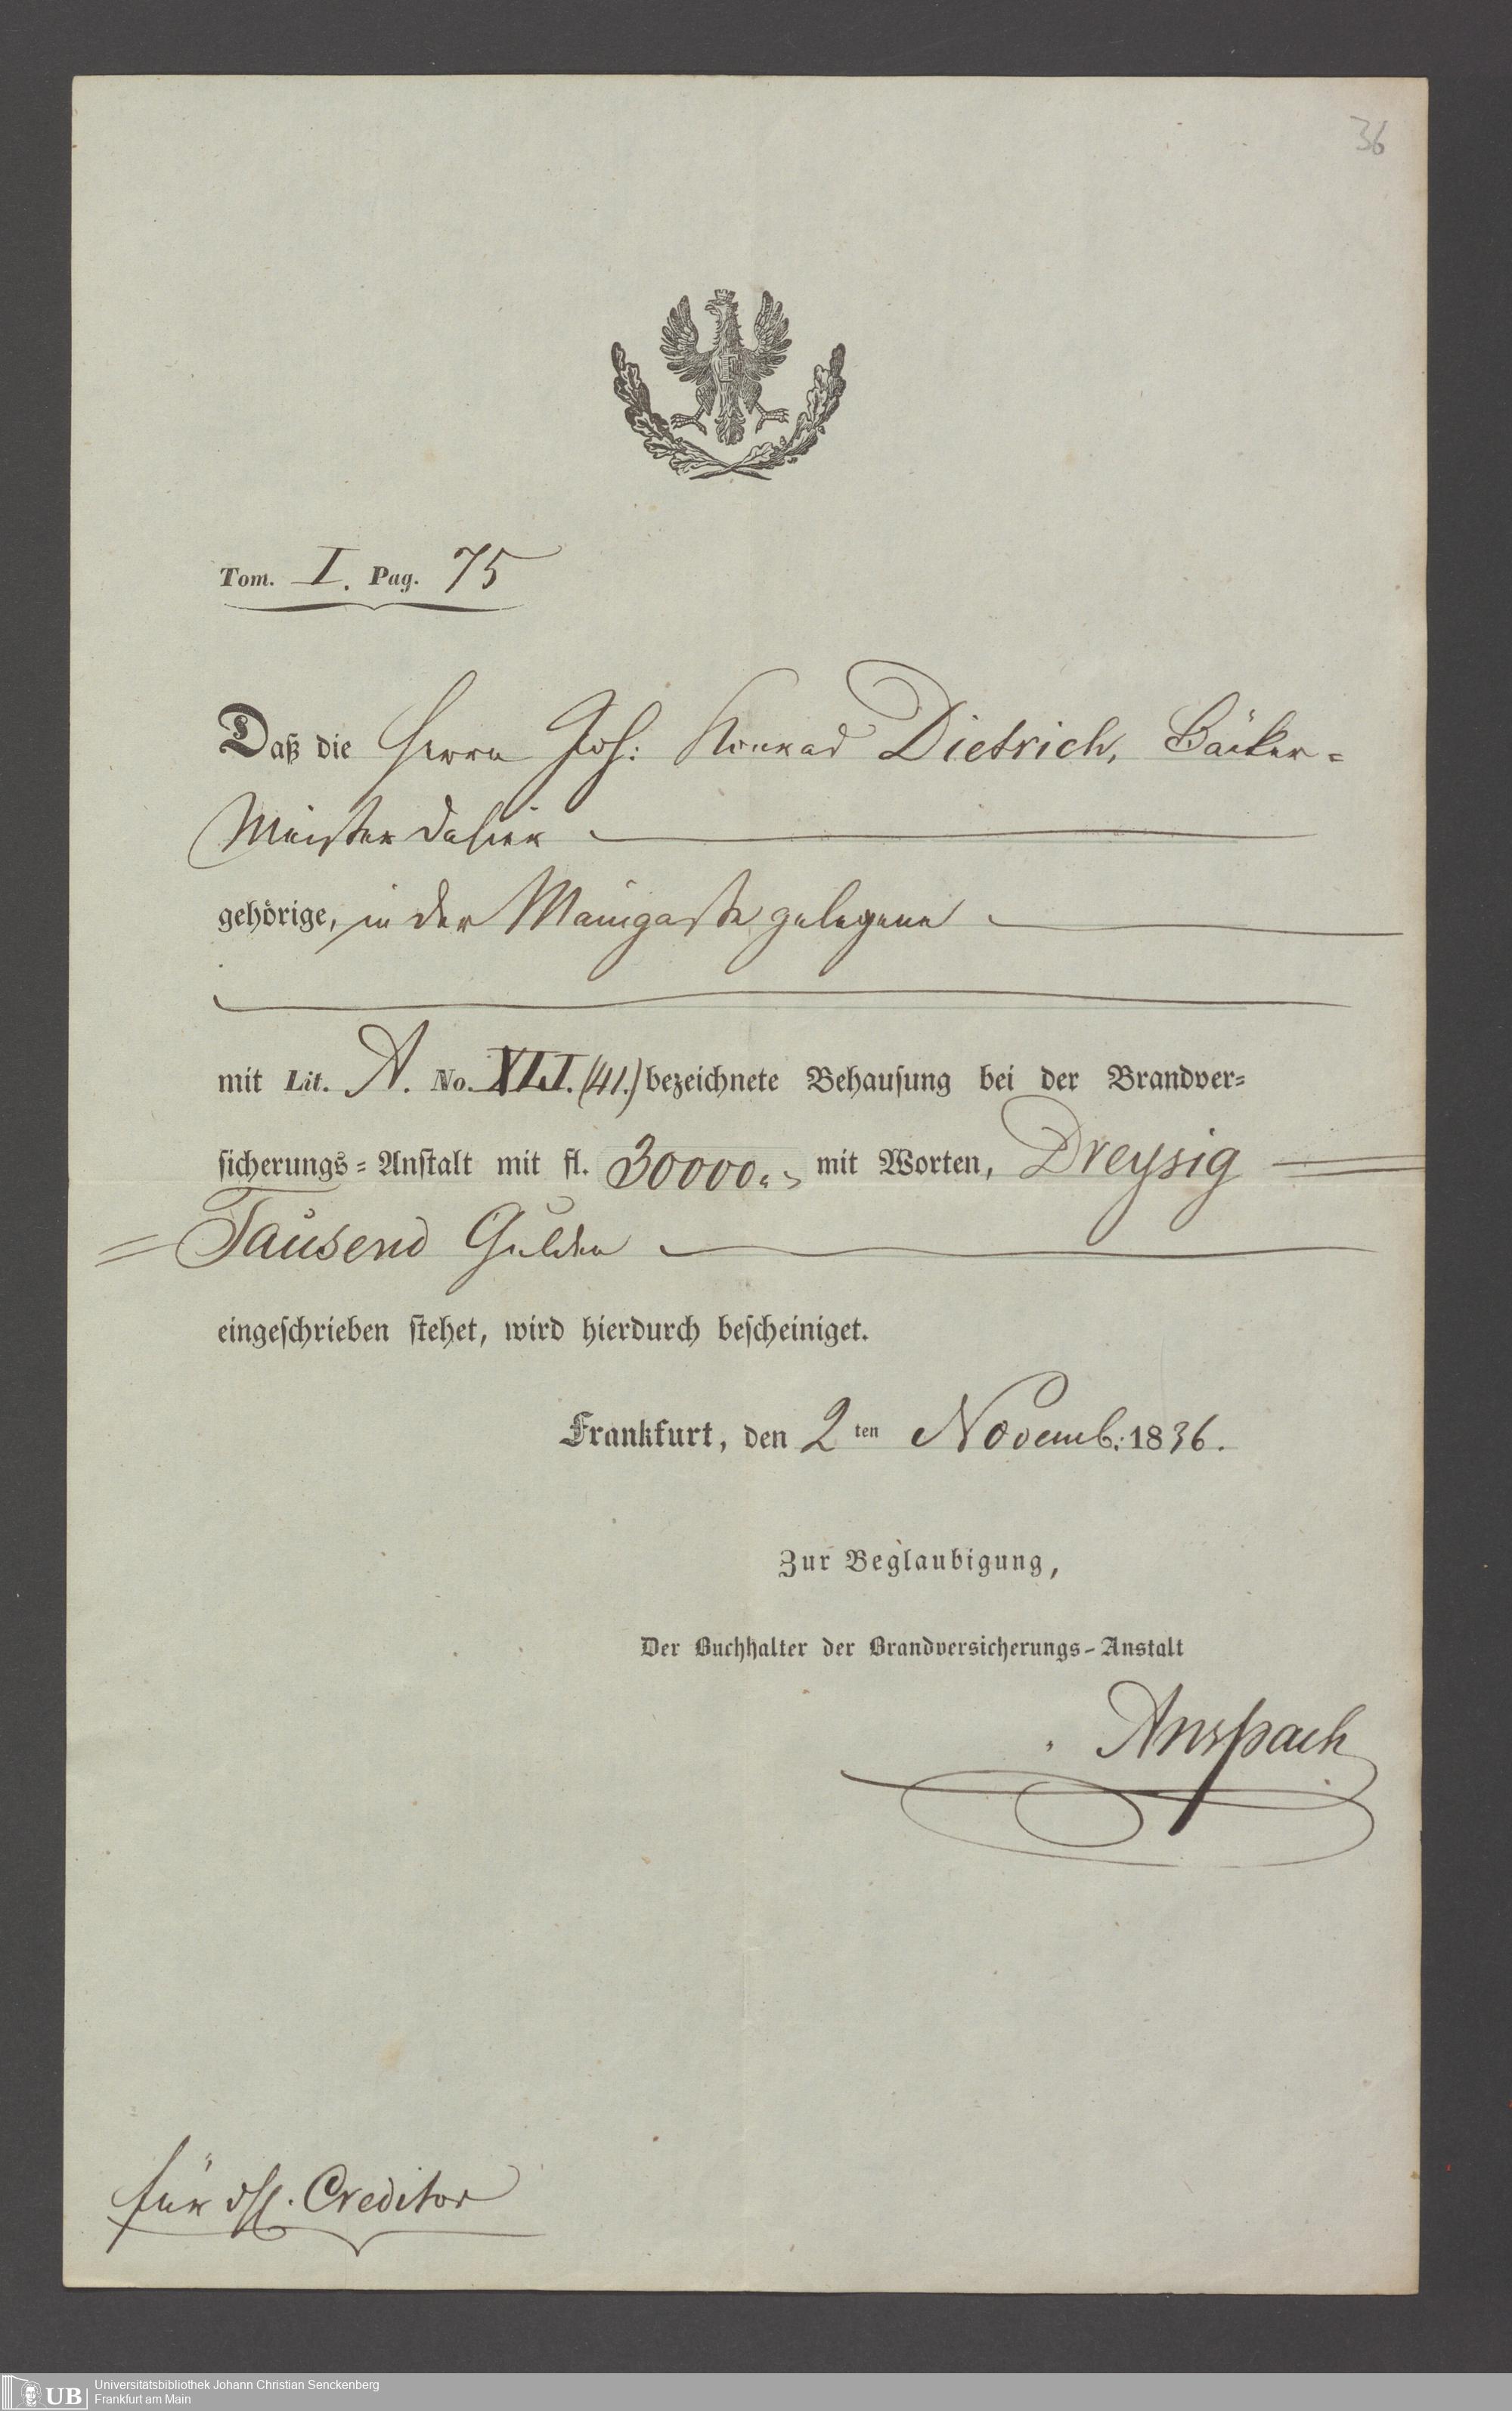 36
Tom. I. Pag. 75
Daß die Herrn Joh: Konrad Dietrich, Bäcker-
Meister dahier
gehörige, in der Maingasse gelegene
mit Lit. A. No. XLI. (41.) bezeichnete Behausung bei der Brandver-
sicherungs-Anstalt mit fl. 30000.„ mit Worten, Dreysig
Tausend Gulden
eingeschrieben stehet, wird hierdurch bescheiniget.
Frankfurt, den 2ten Novemb: 1836.
Zur Beglaubigung,
Der Buchhalter der Brandversicherungs-Anstalt
Anspach
für Creditor
UB
Universitätsbibliothek Johann Christian Senckenberg
Frankfurt am Main